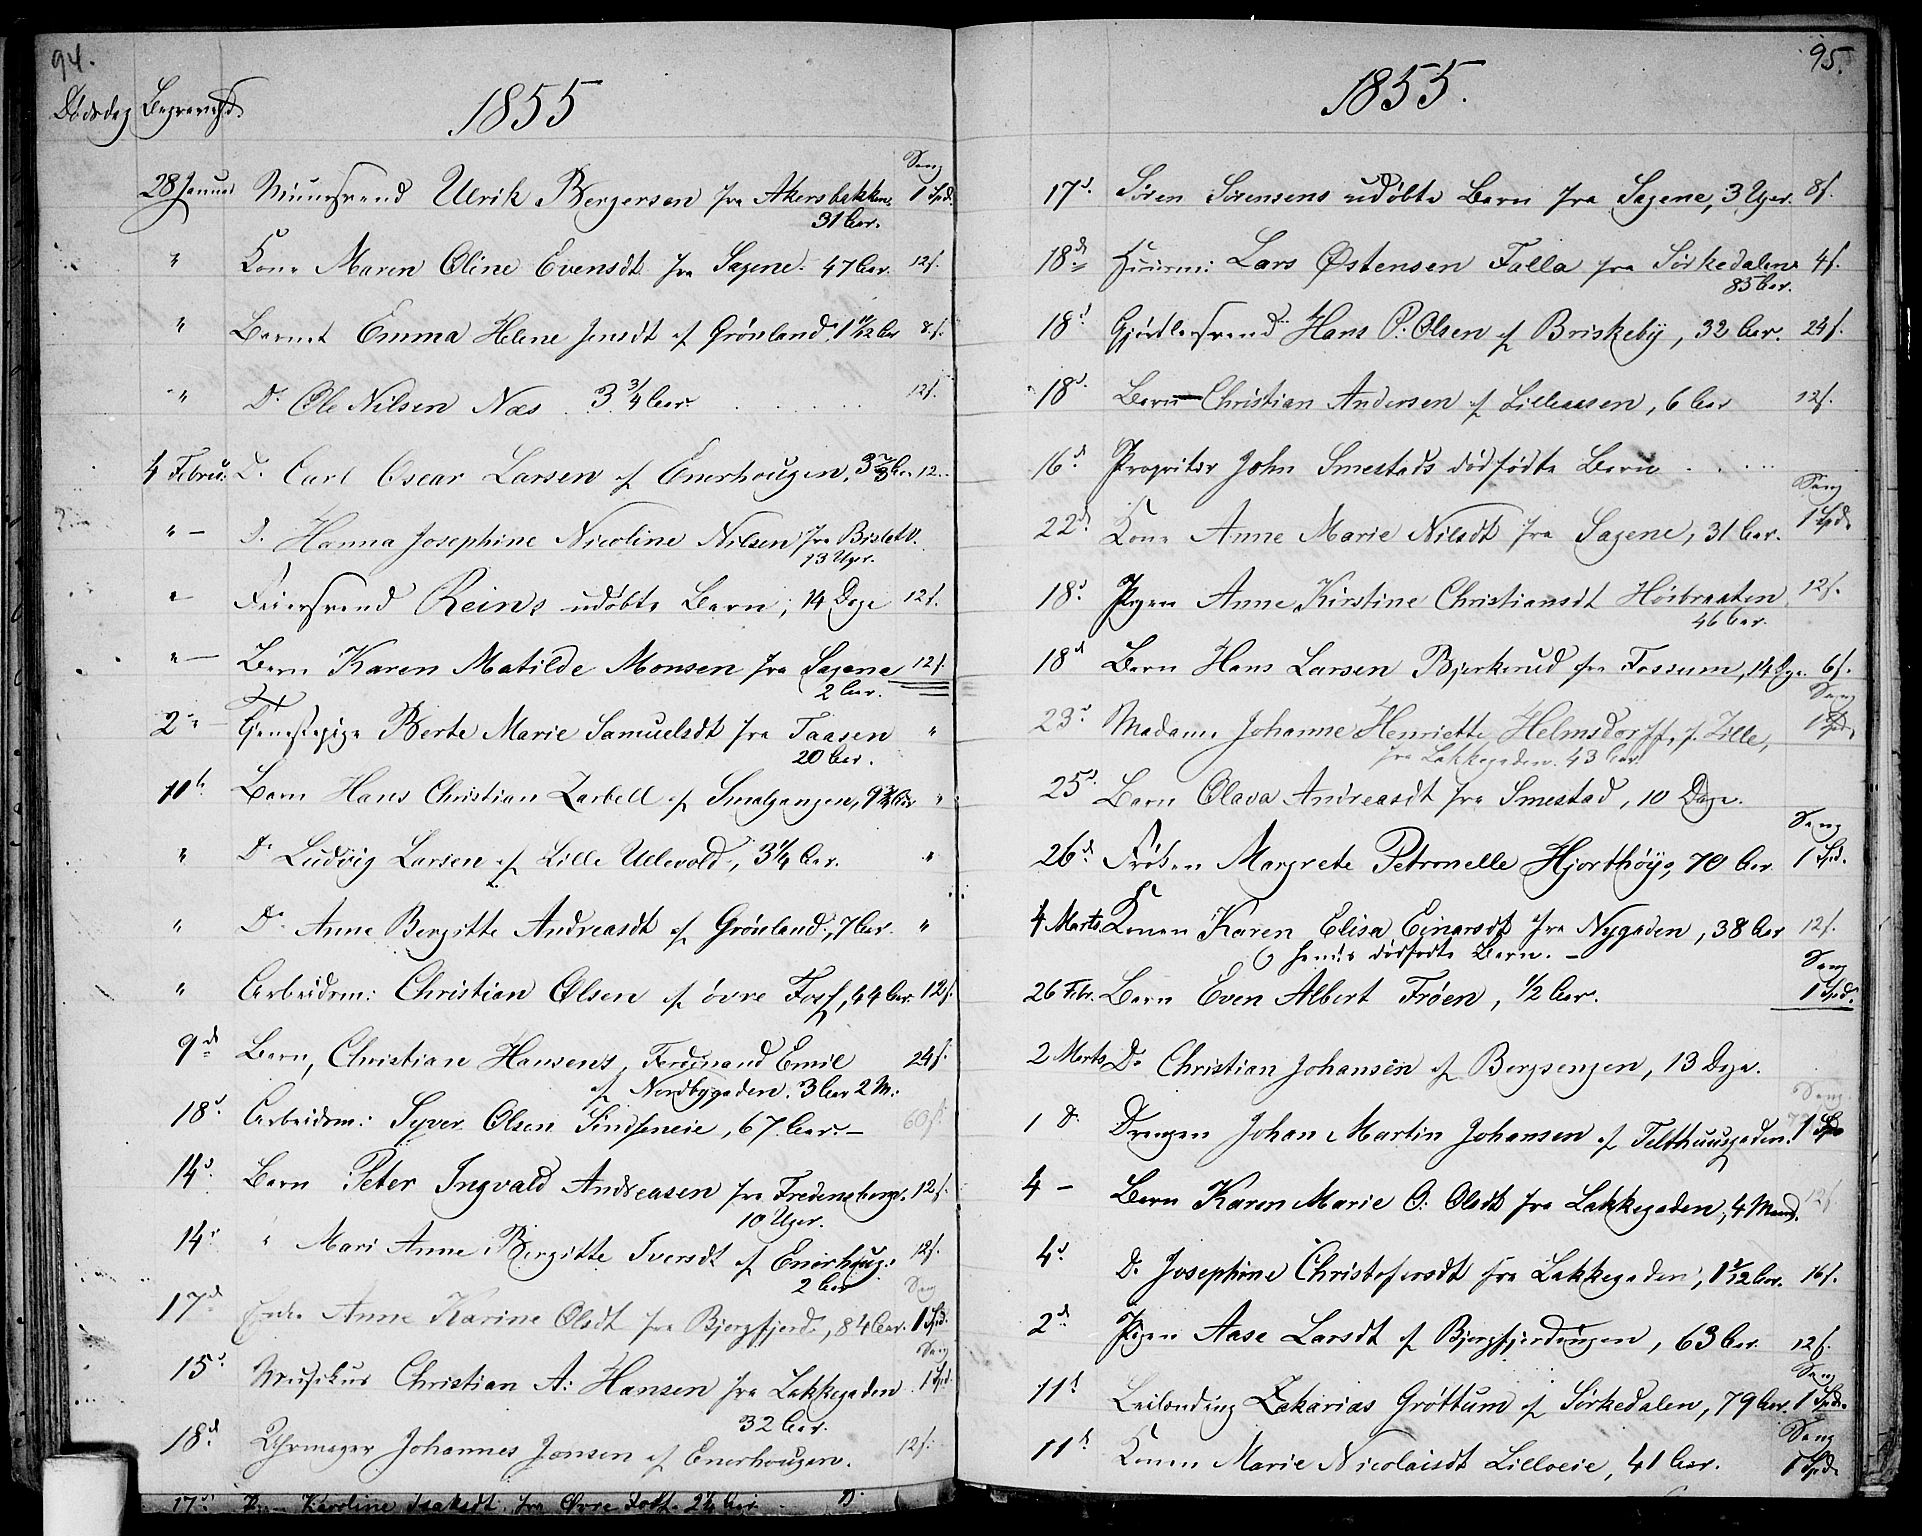 94.
Dødsdag Begravelsd.
1855
Sang
28 Januar Muursvend Ulrik Bergersen fra Akersbakken. 1 Spd.
31 Aar.
" Kone Maren Oline Evensdt fra Sagene. 47 Aar. 12 s.
" Barnet Emma Helene Jensdt af Grønland, 1 Aar 8 s.
" Do Ole Nilsen Næs. 3 3/4 Aar. 12 s.
4 Februar. D. Carl Oscar Larsen af Enerhougen. 3 2/3 Aar 12..
" — D. Hanna Josephine Nicoline Nilsen fra Bislet
13 Uger.
" Feiersvend Reins udøbte Barn, 14 Dage 12 s.
" — Barn Karen Matilde Monsen fra Sagene 12 s.
2 Aar.
2 " — Tjenestepige Berte Marie Samuelsdt fra Taasen "
20 Aar.
11 Barn Hans Christian Zarbell af Smalgangen, 9 Aar "
" Do Ludvig Larsen af Lille Ullevold, 3 1/4 Aar. "
" Do Anne Bergitte Andreasdt af Grønland, 7 Aar. "
" Arbeidsm: Christian Olsen af øvre Foss, 44 Aar 12 s.
9 d Barn, Christian Hansens, Ferdinand Emil 24 s.
af Nordbygaden. 3 Aar 2 M:
18 d. Arbeidsm: Syver Olsen Sindseneie, 67 Aar. — 60 s.
14 d. Barn Peter Ingvald Andreasen fra Fredensborg. 12 s.
10 Uger.
14 d " Mari Anne Bergitte Iversdt af Enerhoug: 12 s.
2 Aar
Sang
17 d Enke Anne Karine Olsdt fra Bjergfjerd., 84 Aar. 1 Spd.
Sang
15 d. Musikus Christian A: Hansen fra Lakkegaden. 1 Spd.
32 Aar.
18 d Uhrmager Johannes Jansen af Enerhougen. 12 s.
17 d Karoline Isaksdt. fra Øvre Foss. 2 1/4 Aar.
95.
1855.
17 d. Søren Sørensens udøbte Barn fra Sagene, 3 Uger. 8 s.
18 d Huusm: Lars Østensen Falla fra Sørkedalen 4 s.
85 Aar.
18 d Gjørtlersvend Hans P. Olsen af Briskeby, 32 Aar. 24 s.
18 d. Barn Christian Andersen af Lilleaasen, 6 Aar 12 s.
16 d. Propritær John Smestads dødfødte Barn
Sang
22 d. Kone Anne Marie Nilsdt fra Sagene, 31 Aar. 1 Spd.
18 d. Pigen Anne Kirstine Christiansdt Høibraaten 12 s.
46 Aar.
18 d Barn Hans Larsen Bjerkerud fra Fossum, 14 Dge. 6 s.
Sang
23 d Madame Johanne Henriette Helmsdorff, f. Zille, 1 Spd.
fra Lakkegaden. 43 Aar.
25 d. Barn Olava Andreasdt fra Smestad, 10 Dage.
Sang
26 d Frøken Margrete Petronelle Hjorthøy, 70 Aar 1 Spd.
4 Marts Konen Karen Elisa Einarsdt fra Nygaden, 38 Aar 12 s.
& hendes dødfødte Barn. —
Sang
26 Febr. Barn Even Albert Frøen, 1/2 Aar. 1 Spd.
2 Marts Do Christian Johansen af Bergsengen, 13 Dage.
Sang
1 d Drengen Johan Martin Johansen af Telthuusgaden. 1 Spd
4 — Barn Karen Marie O: Olsdt fra Lakkegaden, 4 Maand. 12 s.
4 d D. Josephine Christofersdt fra Lakkegaden, 1 Aar. 16 s.
2 d Pigen Aase Larsdt af Bjergfjerdingen, 63 Aar. 12 s.
Sang
11 d Leilænding Zakarias Grøttum af Sørkedalen, 79 Aar. 1 Spd.
Sang
11 d Konen Marie Nicolaisdt Lilloeie, 41 Aar. 1 Spd.